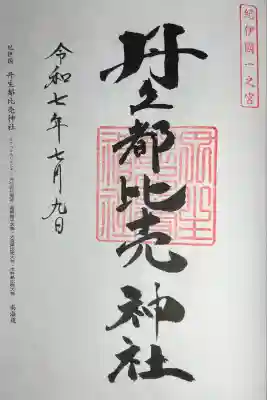 紀伊國一之宮
丹生都比売神社
令和七年七月九日
紀伊国 丹生都比売神社